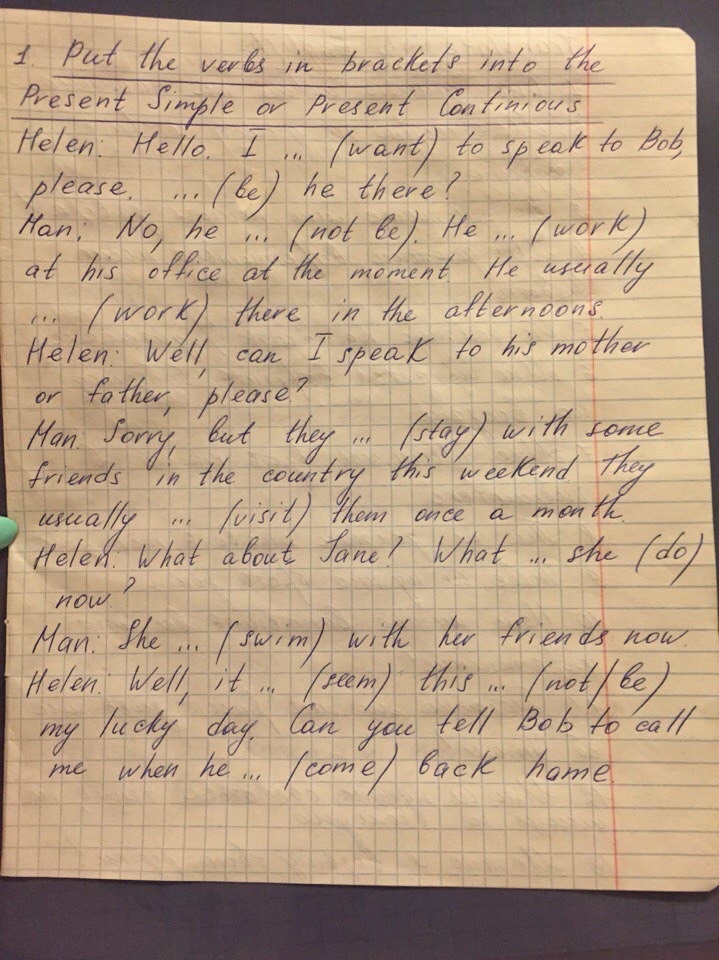 1. Put the verbs in brackets into the
Present Simple or Present Continious
Helen: Hello. I ... (want) to speak to Bob,
please. ... (be) he there?
Man: No, he ... (not be). He ... (work)
at his office at the moment He usually
... (work) there in the afternoons.
Helen: Well, can I speak to his mother
or father, please?
Man. Sorry, but they ... (stay) with some
friends in the country this weekend They
usually ... (visit) them once a month.
Helen: What about Jane? What ... she (do)
now?
Man: She ... (swim) with her friends now.
Helen: Well, it ... (seem) this ... (not/be)
my lucky day. Can you tell Bob to call
me when he ... (come) back home.